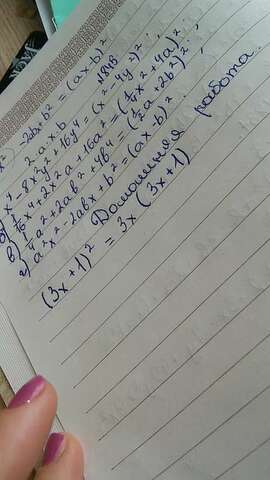 x²) -2abx+b² = (ax-b)²
2·a·x·b
№84В
x⁴-8x²y²+16y⁴=(x²-4y²)²;
б) 1/16x⁴+2x²a+16a²=(1/4x²+4a)²;
в) 1/4a²+2ab²+4b⁴=(1/2a+2b²)²;
г) a²x²-2abx+b²=(ax-b)².
Домашняя работа.
(3x+1)² = 3x (3x+1)